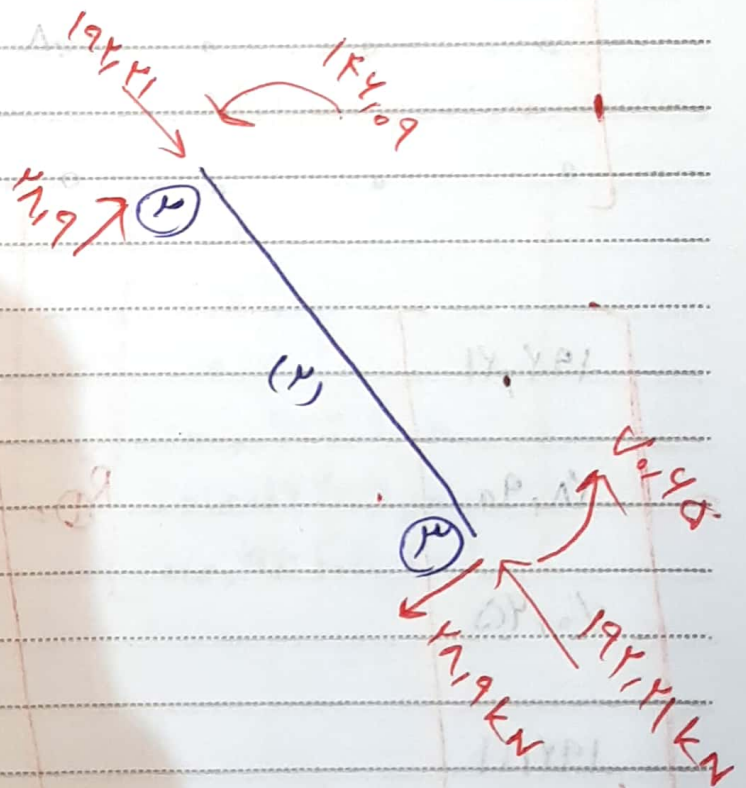 ۱۹۲,۲۱
۱۴۶,۰۹
۲۸,۹
۲
(۲)
۷۰,۶۵
۳
۲۸,۹ kN
۱۹۲,۲۱ kN